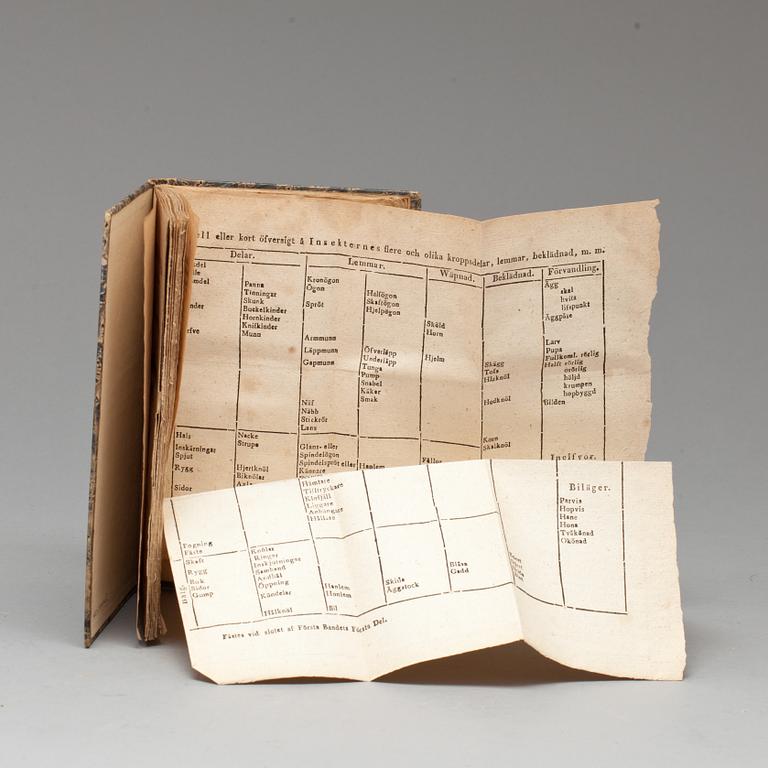 ell eller kort öfversigt å Insekternes flere och olika kroppsdelar, lemmar, beklädnad, m. m.
Delar.
Lemmar.
Wäpnad.
Beklädnad.
Förvandling.
Panna
Tinningar
Skunk
Bockelkinder
Hornkinder
Knifkinder
Munn
Kronögon
Ögon
Spröt
Armmunn
Läppmunn
Gapmunn
Näf
Näbb
Stickrör
Lans
Halfögon
Skaftögon
Hjelpögon
Öfverläpp
Underläpp
Tunga
Pump
Snabel
Käkar
Smak
Sköld
Horn
Hjelm
Skägg
Tofs
Hårknöl
Hudknöl
Korn
Skalknöl
Ägg
skal
hvita
lifspunkt
Äggpäre
Larv
Pupa
Fullkoml. rörlig
Halft rörlig
orörlig
höljd
krumpen
hopbyggd
Bilden
Hals
Inskärningar
Spjut
Rygg
Sidor
Nacke
Strupe
Hjertknöl
Biknölar
Axlar
Glans- eller
Spindelögon
Spindelspröt eller
Kännare
Hanlem
Fällor
Fogning
Fäste
Skaft
Rygg
Buk
Sidor
Gump
Knölar
Ringer
Inskjutningar
Samband
Andhål
Öppning
Kändelar
Hålknöl
Hämtare
Tilltryckare
Klotjäll
Liggare
Anhängare
Hållare
Hanlem
Honlem
Bil
Skida
Äggstock
Blåsa
Gadd
Biläger.
Parvis
Hopvis
Hane
Hona
Tvåkönad
Okönad
Fästes vid slutet af Första Bandets Första Del.